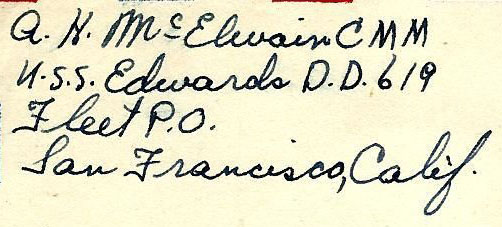 A. H. McElwain CMM
U.S.S. Edwards D.D. 619
Fleet P.O.
San Francisco, Calif.